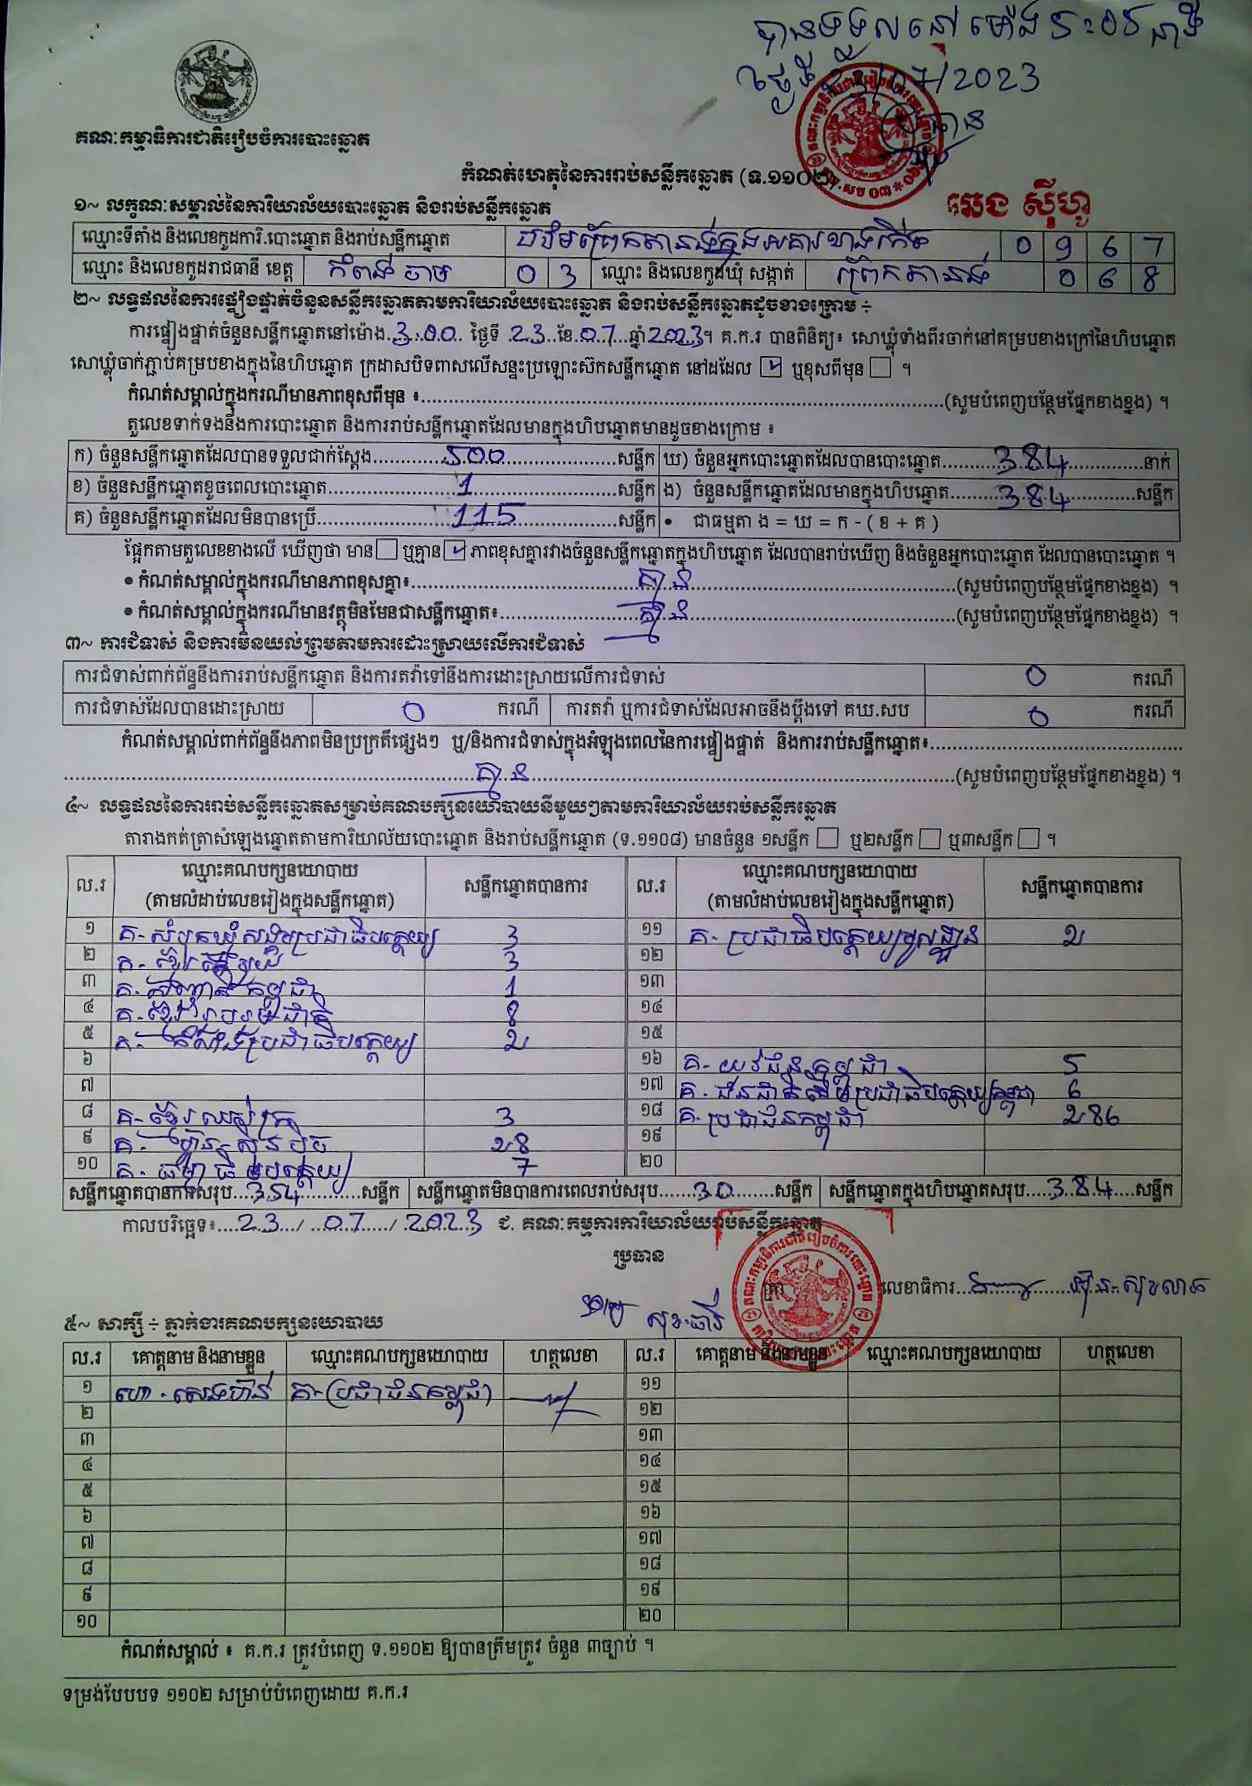 បានទទួលនៅម៉ោង 5:05 នាទី
ថ្ងៃទី 23/07/2023
ប្រធាន
គណៈកម្មាធិការជាតិរៀបចំការបោះឆ្នោត
កំណត់ហេតុនៃការរាប់សន្លឹកឆ្នោត (ទ.១១០២)
ឆេង ស៊ីហូ
១~ លក្ខណៈសម្គាល់នៃការិយាល័យបោះឆ្នោត និងរាប់សន្លឹកឆ្នោត
ឈ្មោះទីតាំង និងលេខកូដការិ.បោះឆ្នោត និងរាប់សន្លឹកឆ្នោត 0 9 6 7
ឈ្មោះ និងលេខកូដរាជធានី ខេត្ត កំពង់ចាម 0 3 ឈ្មោះ និងលេខកូដឃុំ សង្កាត់ ព្រែកតានង់ 0 6 8
២~ លទ្ធផលនៃការផ្ទៀងផ្ទាត់ចំនួនសន្លឹកឆ្នោតតាមការិយាល័យបោះឆ្នោត និងរាប់សន្លឹកឆ្នោតដូចខាងក្រោម ÷
ការផ្ទៀងផ្ទាត់ចំនួនសន្លឹកឆ្នោតនៅម៉ោង.3:00. ថ្ងៃទី 23 ខែ.07 ឆ្នាំ 2023។ គ.ក.រ បានពិនិត្យ៖ សោឃ្លុំទាំងពីរចាក់នៅគម្របខាងក្រៅនៃហិបឆ្នោត
សោឃ្លុំចាក់ភ្ជាប់គម្របខាងក្នុងនៃហិបឆ្នោត ក្រដាសបិទពាសលើសន្ទះប្រឡោះស៊កសន្លឹកឆ្នោត នៅដដែល ☑ ឬខុសពីមុន ☐ ។
កំណត់សម្គាល់ក្នុងករណីមានភាពខុសពីមុន ៖ (សូមបំពេញបន្ថែមផ្នែកខាងខ្នង) ។
តួលេខទាក់ទងនឹងការបោះឆ្នោត និងការរាប់សន្លឹកឆ្នោតដែលមានក្នុងហិបឆ្នោតមានដូចខាងក្រោម ៖
ក) ចំនួនសន្លឹកឆ្នោតដែលបានទទួលជាក់ស្តែង 500 សន្លឹក ឃ) ចំនួនអ្នកបោះឆ្នោតដែលបានបោះឆ្នោត 384 នាក់
ខ) ចំនួនសន្លឹកឆ្នោតខូចពេលបោះឆ្នោត 1 សន្លឹក ង) ចំនួនសន្លឹកឆ្នោតដែលមានក្នុងហិបឆ្នោត 384 សន្លឹក
គ) ចំនួនសន្លឹកឆ្នោតដែលមិនបានប្រើ 115 សន្លឹក • ជាធម្មតា ង = ឃ = ក - ( ខ + គ )
ផ្អែកតាមតួលេខខាងលើ ឃើញថា មាន ☐ ឬគ្មាន ☑ ភាពខុសគ្នារវាងចំនួនសន្លឹកឆ្នោតក្នុងហិបឆ្នោត ដែលបានរាប់ឃើញ និងចំនួនអ្នកបោះឆ្នោត ដែលបានបោះឆ្នោត ។
• កំណត់សម្គាល់ក្នុងករណីមានភាពខុសគ្នា៖ គ្មាន (សូមបំពេញបន្ថែមផ្នែកខាងខ្នង) ។
• កំណត់សម្គាល់ក្នុងករណីមានវត្ថុមិនមែនជាសន្លឹកឆ្នោត៖ គ្មាន (សូមបំពេញបន្ថែមផ្នែកខាងខ្នង) ។
៣~ ការជំទាស់ និងការមិនយល់ព្រមតាមការដោះស្រាយលើការជំទាស់
ការជំទាស់ពាក់ព័ន្ធនឹងការរាប់សន្លឹកឆ្នោត និងការតវ៉ាទៅនឹងការដោះស្រាយលើការជំទាស់ 0 ករណី
ការជំទាស់ដែលបានដោះស្រាយ 0 ករណី ការតវ៉ា ឬការជំទាស់ដែលអាចនឹងប្តឹងទៅ គឃ.សប 0 ករណី
កំណត់សម្គាល់ពាក់ព័ន្ធនឹងភាពមិនប្រក្រតីផ្សេងៗ ឬ/និងការជំទាស់ក្នុងអំឡុងពេលនៃការផ្ទៀងផ្ទាត់ និងការរាប់សន្លឹកឆ្នោត៖
គ្មាន (សូមបំពេញបន្ថែមផ្នែកខាងខ្នង) ។
៤~ លទ្ធផលនៃការរាប់សន្លឹកឆ្នោតសម្រាប់គណបក្សនយោបាយនីមួយៗតាមការិយាល័យរាប់សន្លឹកឆ្នោត
តារាងកត់ត្រាសំឡេងឆ្នោតតាមការិយាល័យបោះឆ្នោត និងរាប់សន្លឹកឆ្នោត (ទ.១១០៨) មានចំនួន ១សន្លឹក ☐ ឬ២សន្លឹក ☐ ឬ៣សន្លឹក ☐ ។
ល.រ ឈ្មោះគណបក្សនយោបាយ (តាមលំដាប់លេខរៀងក្នុងសន្លឹកឆ្នោត) សន្លឹកឆ្នោតបានការ ល.រ ឈ្មោះគណបក្សនយោបាយ (តាមលំដាប់លេខរៀងក្នុងសន្លឹកឆ្នោត) សន្លឹកឆ្នោតបានការ
១ គ- សំបុកឃ្មុំសង្គមប្រជាធិបតេយ្យ 3 ១១ គ- ប្រជាធិបតេយ្យមូលដ្ឋាន 2
២ 3 ១២
៣ 1 ១៣
៤ គ- ខ្មែររួបរួមជាតិ 8 ១៤
៥ 2 ១៥
៦ ១៦ គ- យុវជនកម្ពុជា 5
៧ ១៧ 6
៨ គ- ខ្មែរឈប់ក្រ 3 ១៨ គ- ប្រជាជនកម្ពុជា 286
៩ គ- ហ្វ៊ុនស៊ិនប៉ិច 28 ១៩
១០ គ- ធម្មាធិបតេយ្យ 7 ២០
សន្លឹកឆ្នោតបានការសរុប 354 សន្លឹក សន្លឹកឆ្នោតមិនបានការពេលរាប់សរុប 30 សន្លឹក សន្លឹកឆ្នោតក្នុងហិបឆ្នោតសរុប 384 សន្លឹក
កាលបរិច្ឆេទ៖ 23 / 07 / 2023 ជ. គណៈកម្មការការិយាល័យរាប់សន្លឹកឆ្នោត
ប្រធាន
ត្រា លេខាធិការ
៥~ សាក្សី ÷ ភ្នាក់ងារគណបក្សនយោបាយ
ល.រ គោត្តនាម និងនាមខ្លួន ឈ្មោះគណបក្សនយោបាយ ហត្ថលេខា ល.រ គោត្តនាម និងនាមខ្លួន ឈ្មោះគណបក្សនយោបាយ ហត្ថលេខា
១ គ- ប្រជាជនកម្ពុជា ១១
២ ១២
៣ ១៣
៤ ១៤
៥ ១៥
៦ ១៦
៧ ១៧
៨ ១៨
៩ ១៩
១០ ២០
កំណត់សម្គាល់ ៖ គ.ក.រ ត្រូវបំពេញ ទ.១១០២ ឱ្យបានត្រឹមត្រូវ ចំនួន ៣ច្បាប់ ។
ទម្រង់បែបបទ ១១០២ សម្រាប់បំពេញដោយ គ.ក.រ